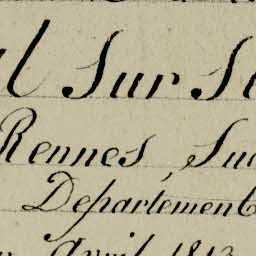 l Sur S
Rennes, Su
Departement
Avril 181